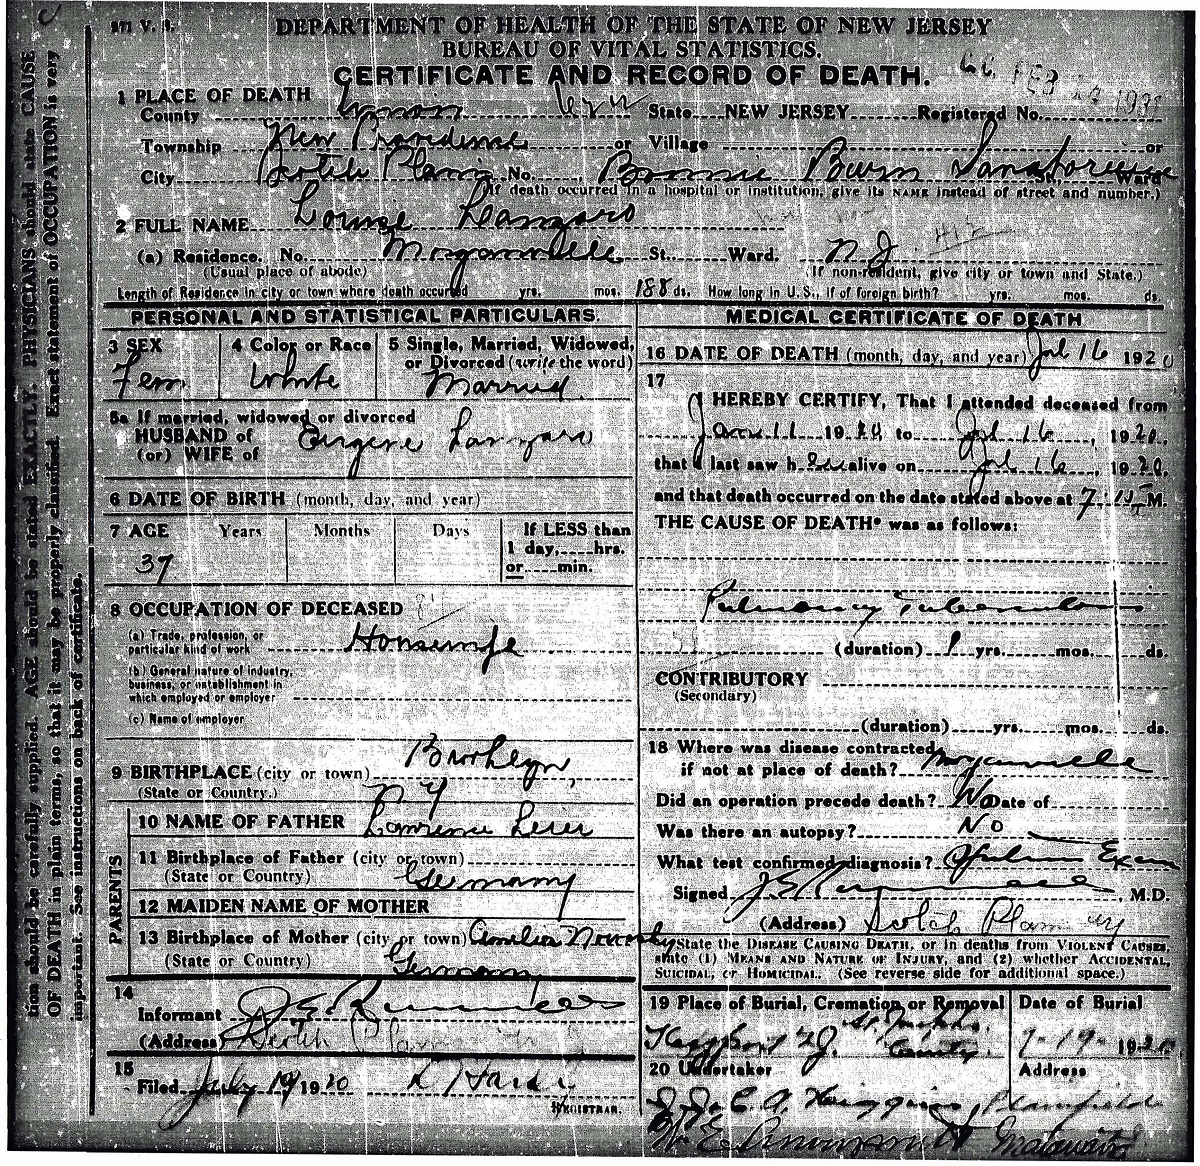 DEPARTMENT OF HEALTH OF THE STATE OF NEW JERSEY
BUREAU OF VITAL STATISTICS.
CERTIFICATE AND RECORD OF DEATH.
FEB
1 PLACE OF DEATH
County Union State NEW JERSEY Registered No.
Township New Providence or Village or
City Scotch Plains No. Bonnie Burn Sanatorium Ward
(If death occurred in a hospital or institution, give its NAME instead of street and number.)
2 FULL NAME Louise Lanzaro
(a) Residence. No. Morganville St. Ward. N.J.
(Usual place of abode) (If non-resident, give city or town and State.)
Length of Residence in city or town where death occurred yrs. mos. 188 ds. How long in U.S., if of foreign birth? yrs. mos. ds.
PERSONAL AND STATISTICAL PARTICULARS.
3 SEX 4 Color or Race 5 Single, Married, Widowed, or Divorced (write the word)
Fem White Married
5a If married, widowed or divorced
HUSBAND of
(or) WIFE of Eugene Lanzaro
6 DATE OF BIRTH (month, day, and year)
7 AGE Years Months Days If LESS than 1 day,....hrs. or.....min.
37
8 OCCUPATION OF DECEASED
(a) Trade, profession, or particular kind of work Housewife
(b) General nature of industry, business, or establishment in which employed or employer
(c) Name of employer
9 BIRTHPLACE (city or town) Brooklyn,
(State or Country.) N Y
PARENTS
10 NAME OF FATHER Lawrence
11 Birthplace of Father (city or town)
(State or Country) Germany
12 MAIDEN NAME OF MOTHER
13 Birthplace of Mother (city or town) Amelia
(State or Country) Germany
14
Informant
(Address) Scotch Plains
15
Filed July 19 1920
REGISTRAR.
MEDICAL CERTIFICATE OF DEATH
16 DATE OF DEATH (month, day, and year) Jul 16 1920
17
I HEREBY CERTIFY, That I attended deceased from
Jan 11 1920 to Jul 16, 1920.
that I last saw her alive on Jul 16, 1920.
and that death occurred on the date stated above at 7 M.
THE CAUSE OF DEATH* was as follows:
Pulmonary Tuberculosis
(duration) 1 yrs. mos. ds.
CONTRIBUTORY
(Secondary)
(duration) yrs. mos. ds.
18 Where was disease contracted
if not at place of death? Morganville
Did an operation precede death? No Date of
Was there an autopsy? No
What test confirmed diagnosis? Sputum Exam
Signed , M.D.
(Address) Scotch Plains
*State the DISEASE CAUSING DEATH, or in deaths from VIOLENT CAUSES, state (1) MEANS AND NATURE OF INJURY, and (2) whether ACCIDENTAL, SUICIDAL, or HOMICIDAL. (See reverse side for additional space.)
19 Place of Burial, Cremation or Removal Date of Burial
Keyport NJ. County. 7-19- 1920
20 Undertaker Address
Higgins, Plainfield
Matawan
tion should be carefully supplied. AGE should be stated EXACTLY. PHYSICIANS should state CAUSE
OF DEATH in plain terms, so that it may be properly classified. Exact statement of OCCUPATION is very
important. See instructions on back of certificate.